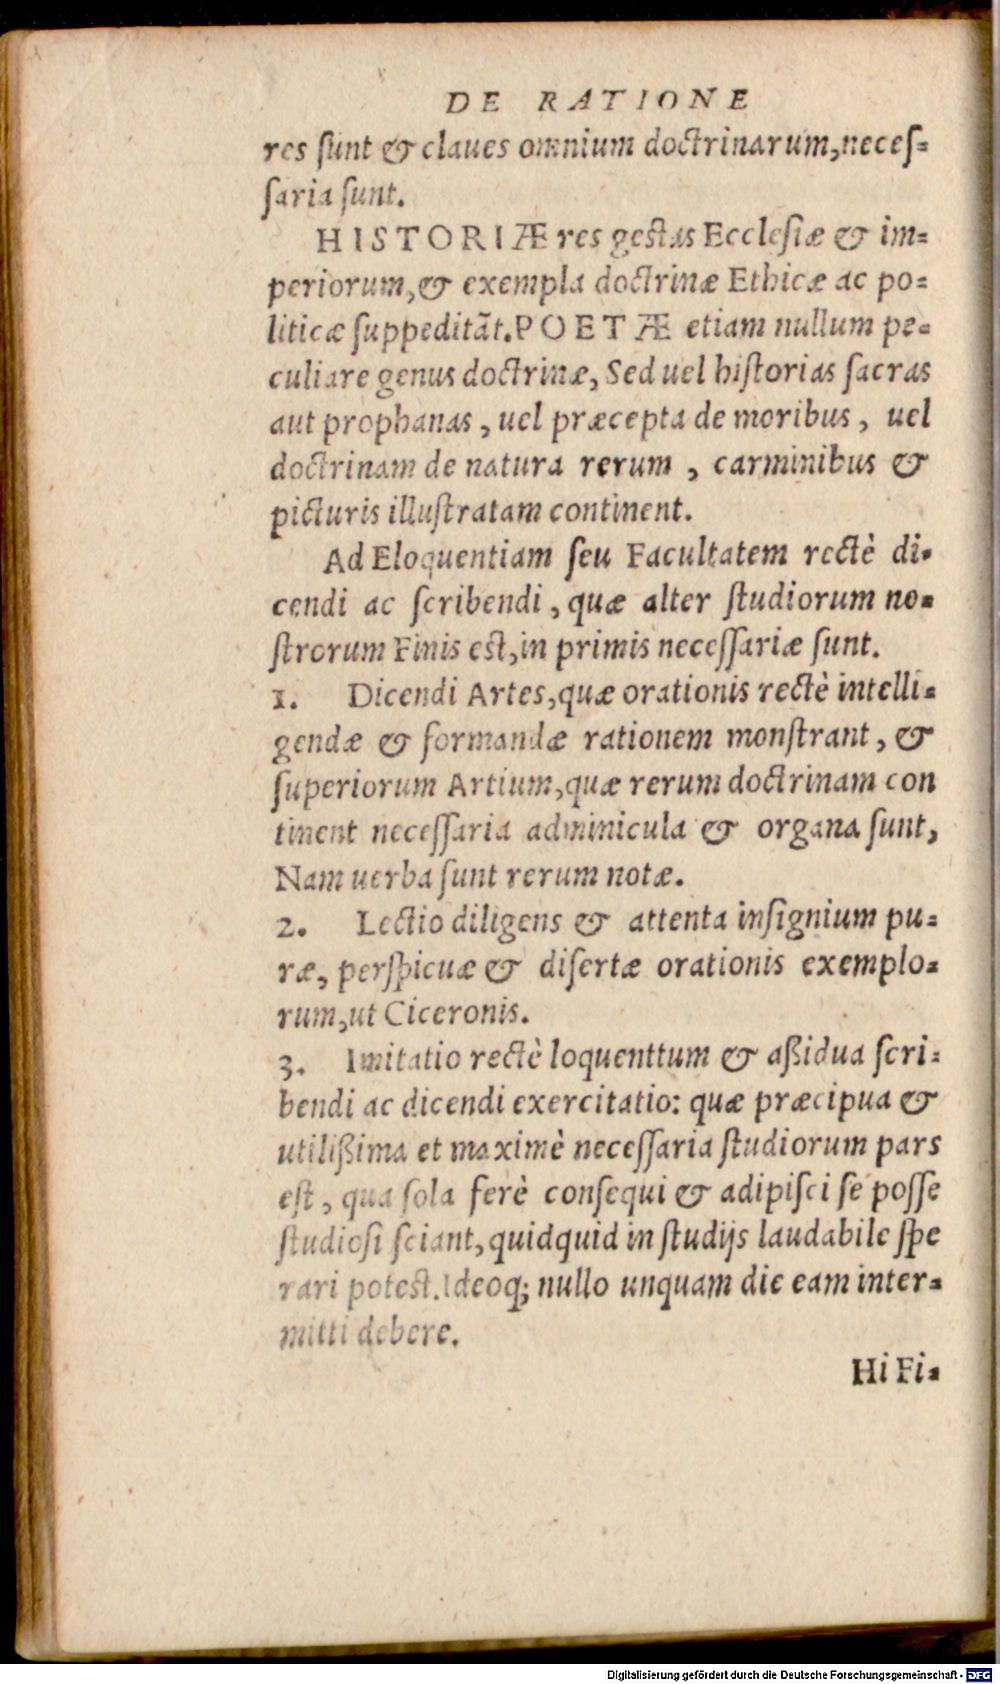 DE RATIONE
res ſunt & claues omnium doctrinarum, neceſ=
ſaria ſunt.
HISTORIÆ res geſtas Eccleſiæ & im=
periorum, & exempla doctrinæ Ethicæ ac po=
liticæ ſuppeditāt. POETÆ etiam nullum pe=
culiare genus doctrinæ, Sed uel hiſtorias ſacras
aut prophanas, uel præcepta de moribus, uel
doctrinam de natura rerum, carminibus &
picturis illuſtratam continent.
Ad Eloquentiam ſeu Facultatem rectè di=
cendi ac ſcribendi, quæ alter ſtudiorum no=
ſtrorum Finis eſt, in primis neceſſariæ ſunt.
1. Dicendi Artes, quæ orationis rectè intelli=
gendæ & formandæ rationem monſtrant, &
ſuperiorum Artium, quæ rerum doctrinam con
tinent neceſſaria adminicula & organa ſunt,
Nam uerba ſunt rerum notæ.
2. Lectio diligens & attenta inſignium pu=
ræ, perſpicuæ & diſertæ orationis exemplo=
rum, ut Ciceronis.
3. Imitatio rectè loquenttum & aßidua ſcri=
bendi ac dicendi exercitatio: quæ præcipua &
utilißima et maximè neceſſaria ſtudiorum pars
eſt, qua ſola ferè conſequi & adipiſci ſe poſſe
ſtudioſi ſciant, quidquid in ſtudijs laudabile ſpe
rari poteſt. Ideoq; nullo unquam die eam inter=
mitti debere.
Hi Fi=
Digitalisierung gefördert durch die Deutsche Forschungsgemeinschaft - DFG